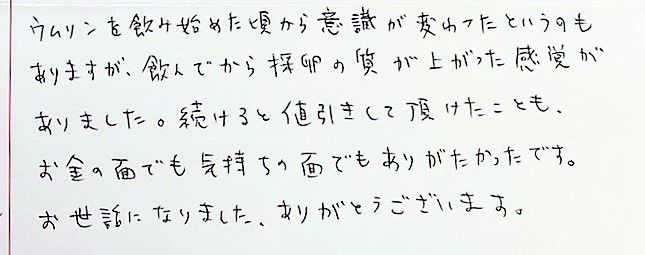 ウムリンを飲み始めた頃から意識が変わったというのも
ありますが、飲んでから採卵の質が上がった感覚が
ありました。続けると値引きして頂けたことも、
お金の面でも気持ちの面でもありがたかったです。
お世話になりました、ありがとうございます。